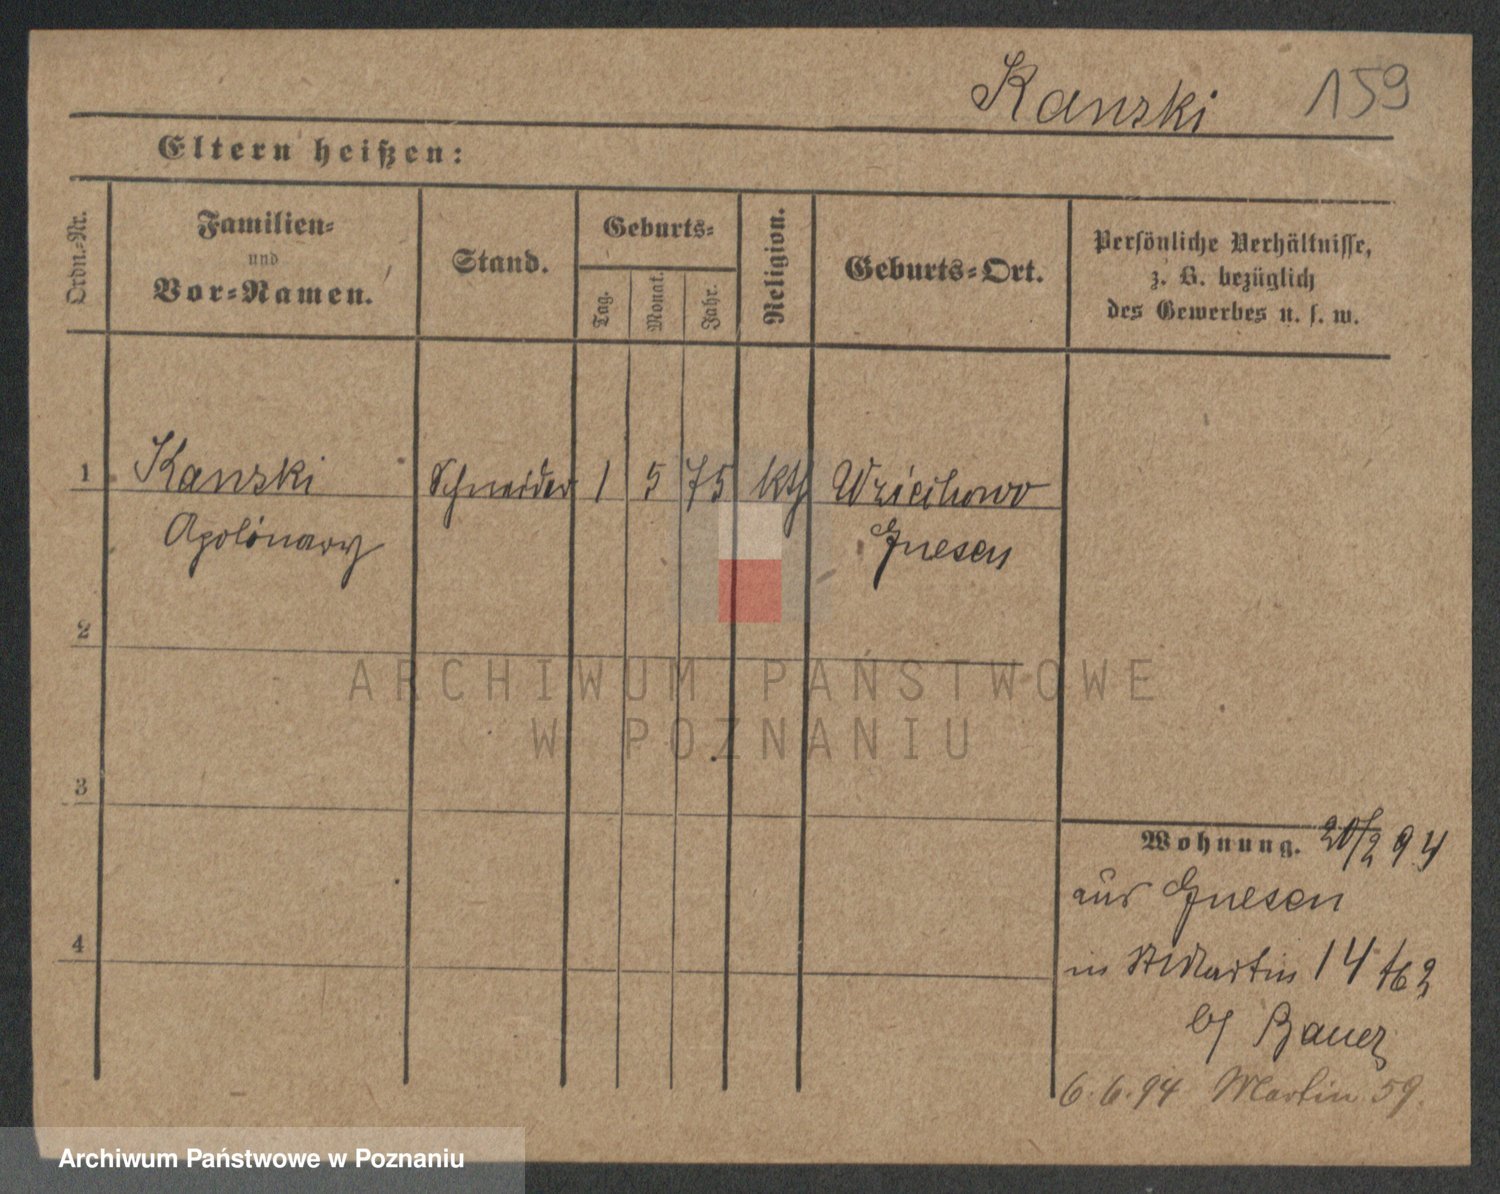 Kanski 159
Eltern heißen:
Ordn.-Nr.
Familien-
und
Vor-Namen.
Stand.
Geburts-
Tag.
Monat.
Jahr.
Religion.
Geburts-Ort.
Persönliche Verhältnisse,
z. B. bezüglich
des Gewerbes u. s. w.
1 Kanski Schneider 1 5 75 kth
Apolinary Gnesen
2
ARCHIWUM PAŃSTWOWE
W POZNANIU
3
Wohnung. 20/2 94
aus Gnesen
4
in St Martin 14
Bauer
6.6.94 Martin 59.
Archiwum Państwowe w Poznaniu